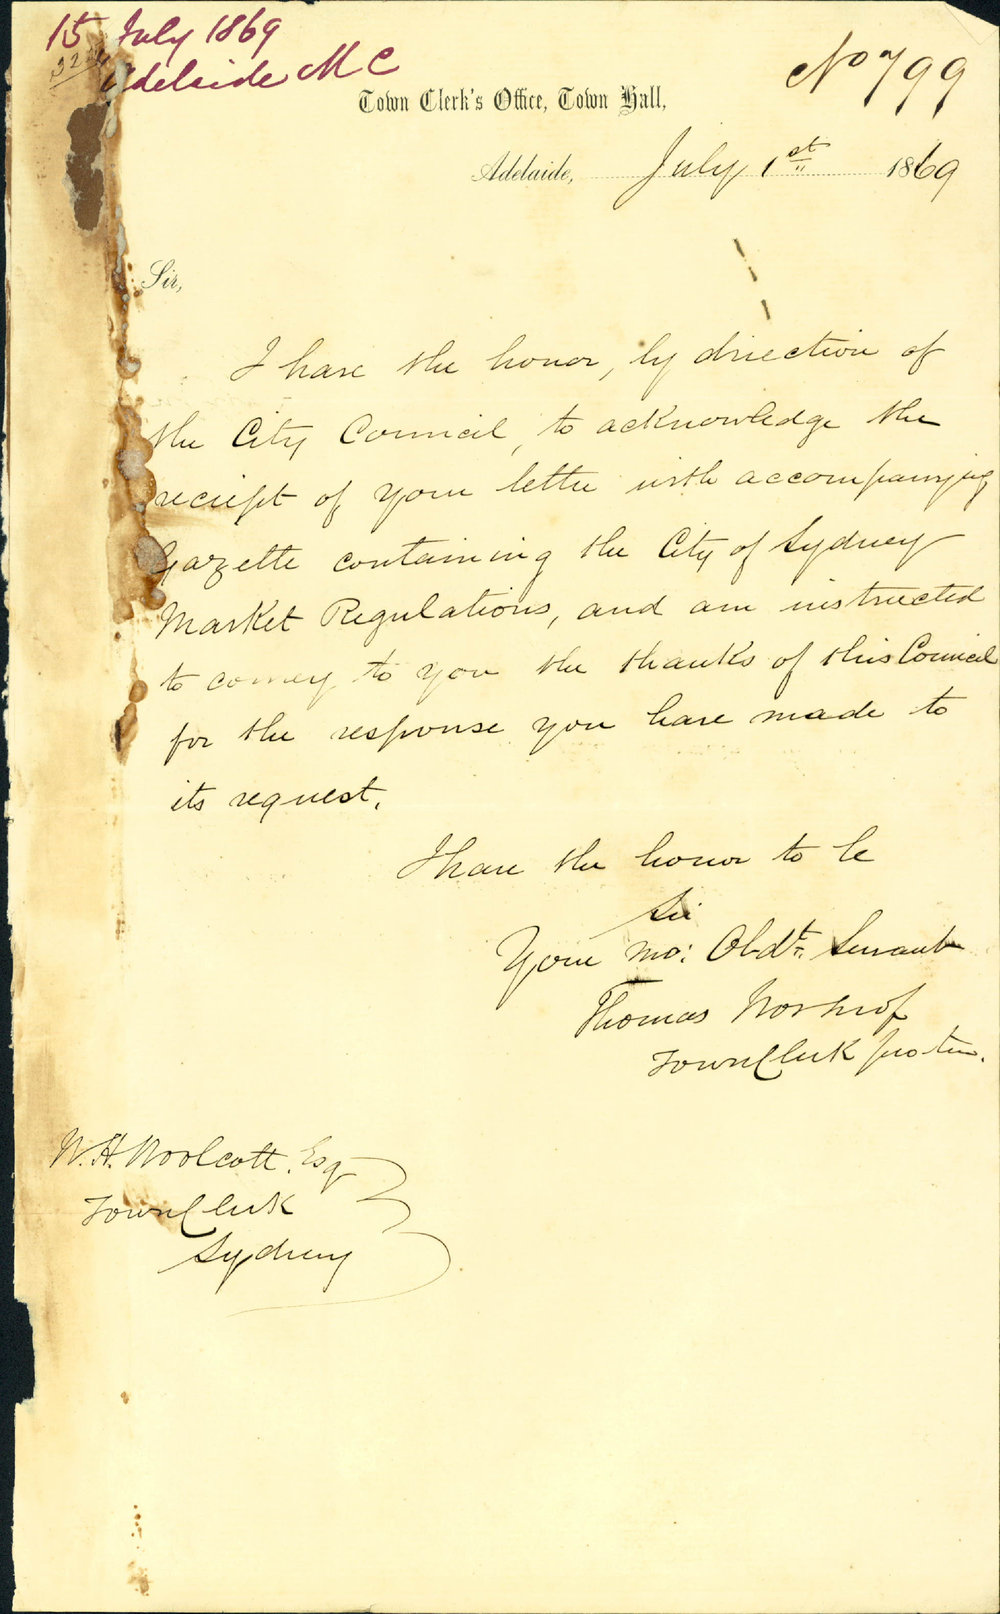 15 July 1869
Adelaide M C
No 799
Town Clerk's Office, Town Hall,
Adelaide, July 1st 1869
Sir,
I have the honor, by direction of
the City Council, to acknowledge the
reciept of your letter with accompanying
Gazette containing the City of Sydney
Market Regulations, and am instructed
to convey to you the thanks of this Council
for the response you have made to
its request.
I have the honor to be
Sir
Your mo: Obdt. Servant
Thomas Worsnop
Town Clerk pro tem.
W. H. Woolcott. Esq
Town Clerk
Sydney